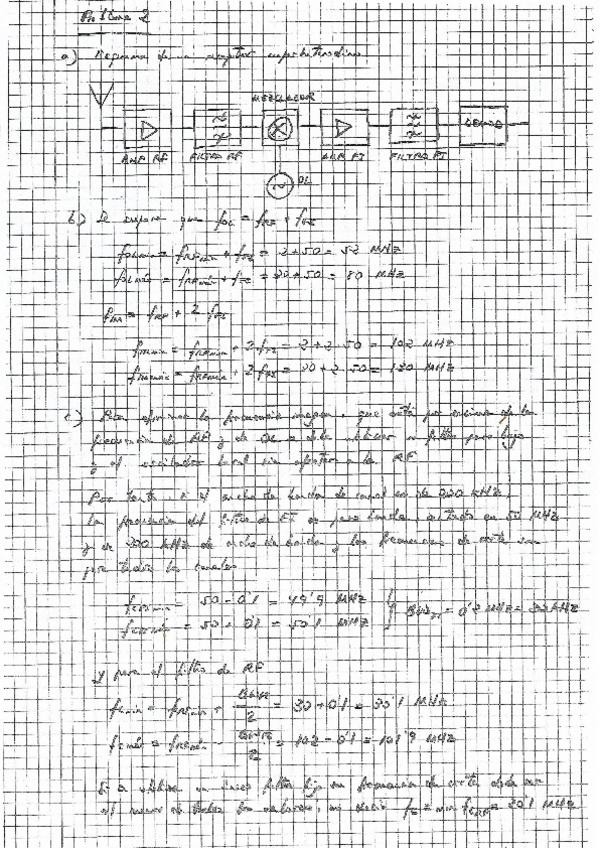 Problema 2
a) Esquema de un receptor superheterodino
MEZCLADOR
DEMOD
AMP RF FILTRO RF AMP FI FILTRO FI
OL
b) Se supone que fOL = fRF + fFI
fOLmin = fRFmin + fFI = 2 + 50 = 52 MHZ
fOLmáx = fRFmáx + fFI = 30 + 50 = 80 MHZ
fIM = fRF + 2 fFI
fIMmin = fRFmin + 2 fFI = 2 + 2 · 50 = 102 MHZ
fIMmáx = fRFmáx + 2 fFI = 30 + 2 · 50 = 130 MHZ
c) Para eliminar la frecuencia imagen, que está por encima de la
frecuencia de RF y de OL se debe utilizar un filtro paso bajo
y el oscilador local sin afectar a la RF
Por tanto, si el ancho de banda de canal es de 200 kHz,
la frecuencia del filtro de FI es paso banda, centrado en 50 MHZ
y de 200 kHz de ancho de banda y las frecuencias de corte son
para todos los canales
fcFImin = 50 - 0'1 = 49'9 MHZ
fcFImáx = 50 + 0'1 = 50'1 MHZ } BWFI = 0'2 MHZ = 200 kHZ
y para el filtro de RF
fcmin = fRFmáx + BWRF/2 = 30 + 0'1 = 30'1 MHZ
fcmáx = fIMmin - BWRF/2 = 102 - 0'1 = 101'9 MHZ
Si se utiliza un único filtro fijo su frecuencia de corte debe ser
el menor de todos los valores, es decir fc = min fcRF = 30'1 MHZ